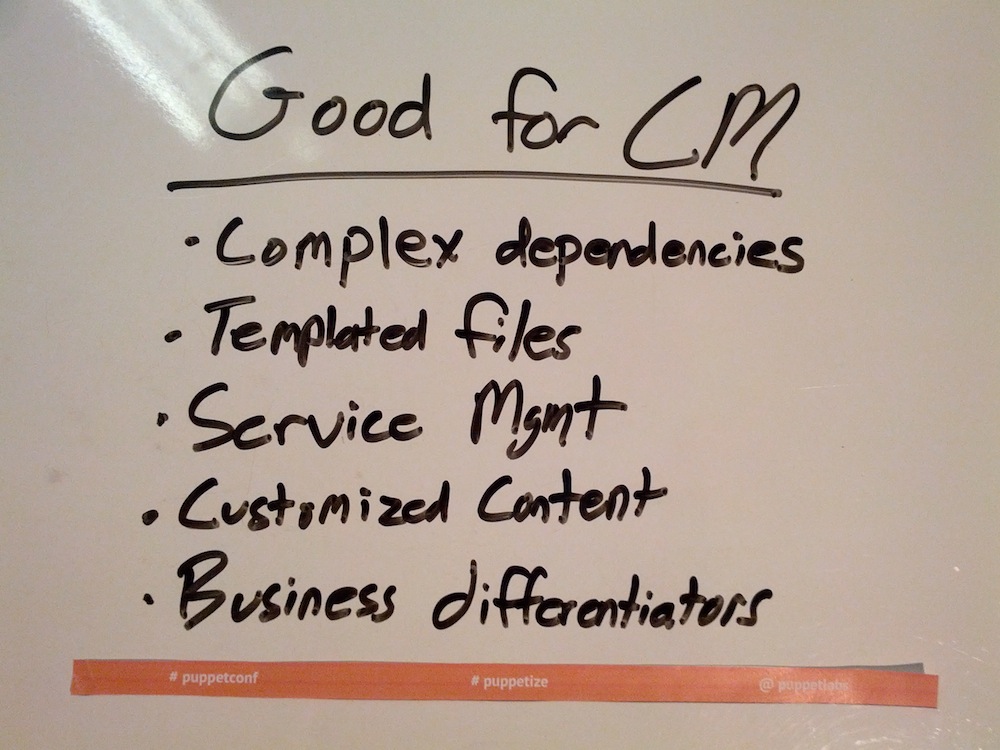 Good for CM
· Complex dependencies
· Templated files
· Service Mgmt
· Customized Content
· Business differentiators
# puppetconf # puppetize @ puppetlabs